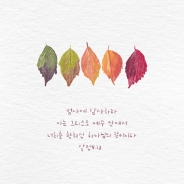 범사에 감사하라
이는 그리스도 예수 안에서
너희를 향하신 하나님의 뜻이니라
살전5:18